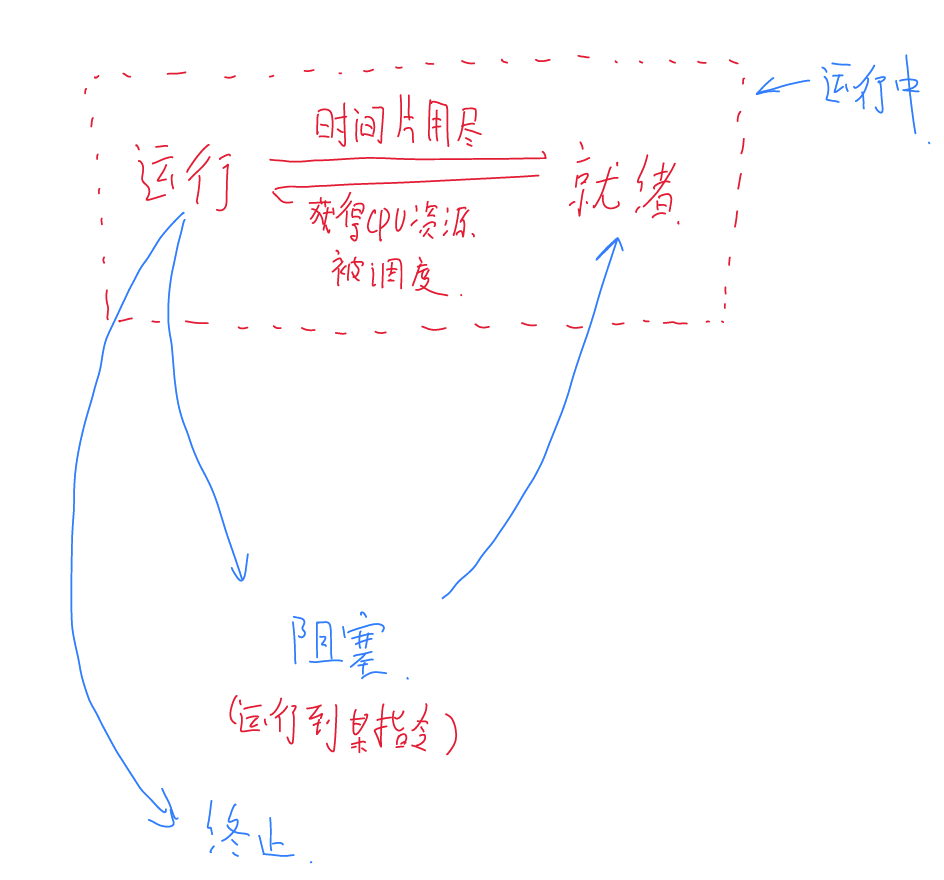 运行中.
时间片用尽
运行
就绪.
获得CPU资源.
被调度.
阻塞.
(运行到某指令)
终止.